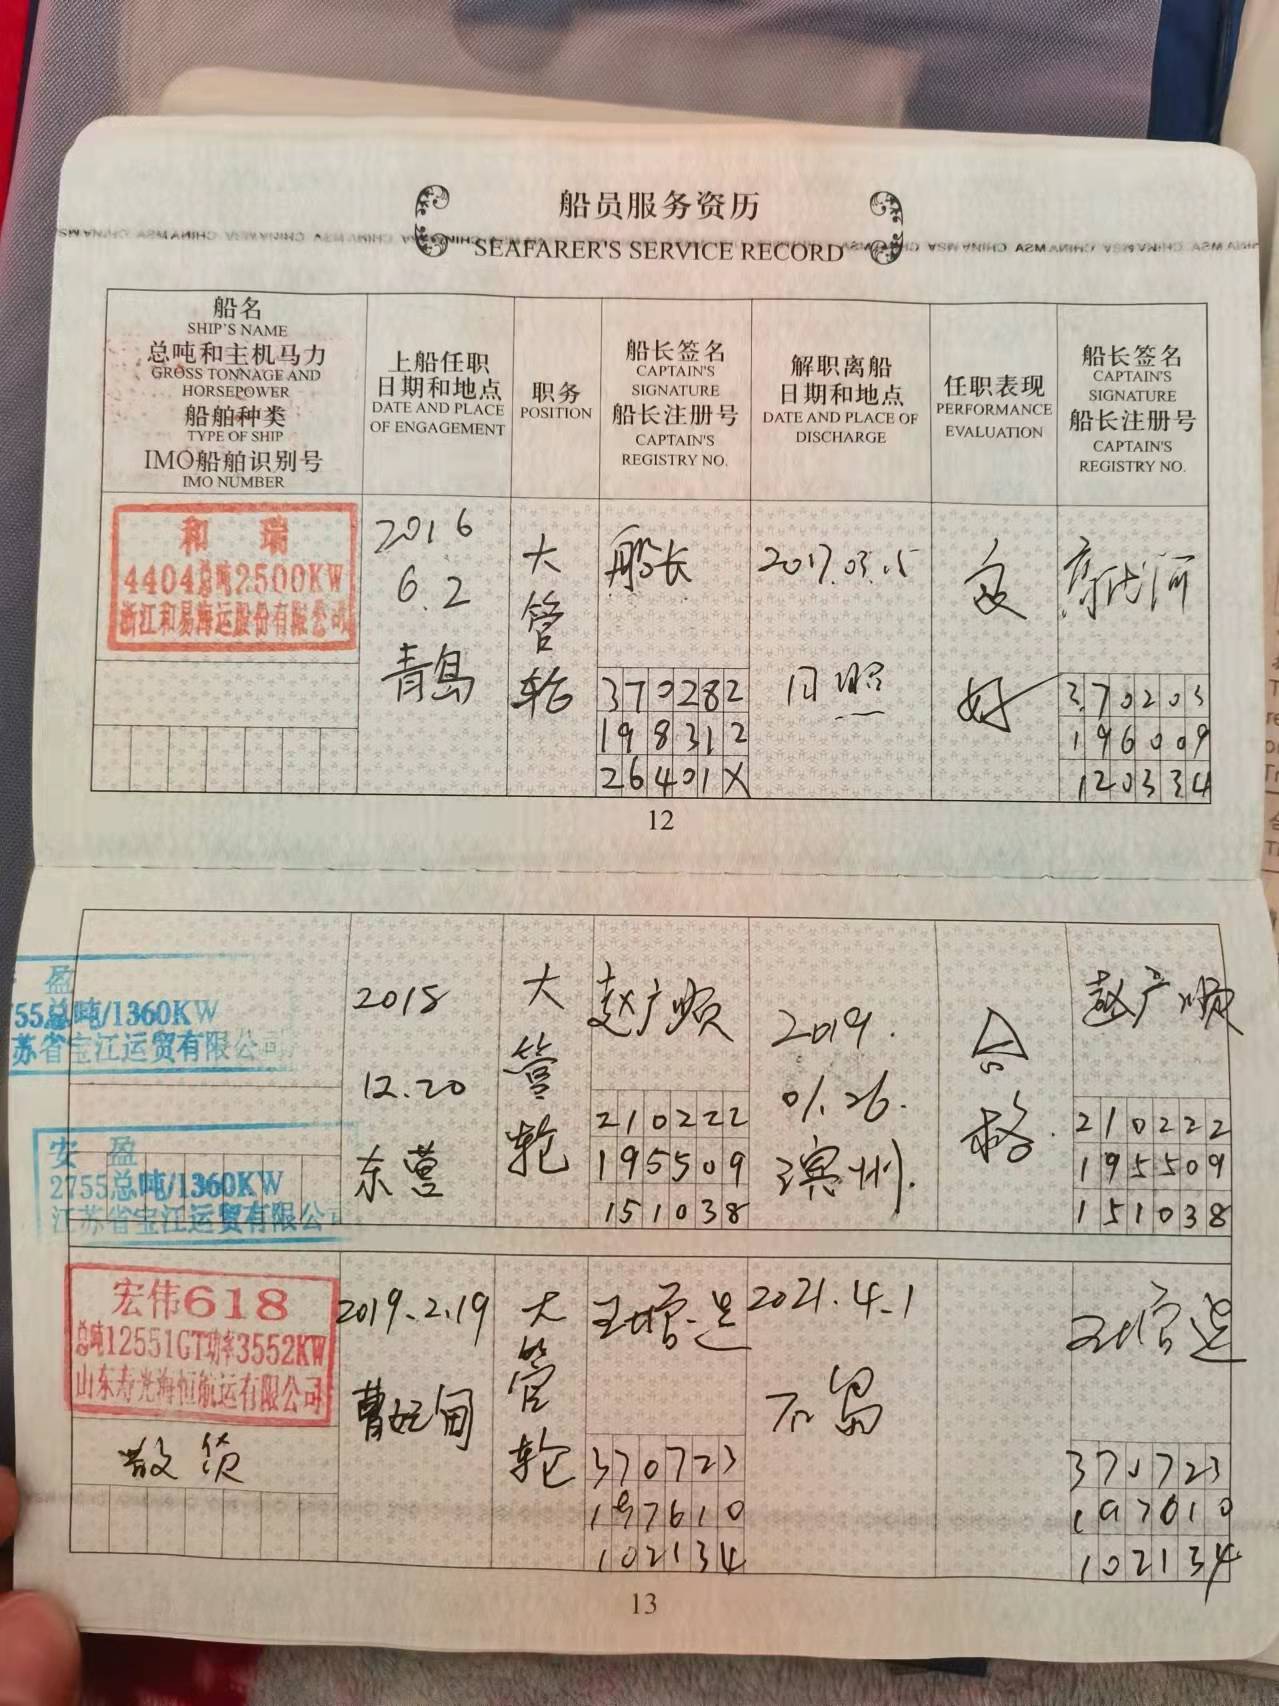 船员服务资历
SEAFARER'S SERVICE RECORD
船名
SHIP'S NAME
总吨和主机马力
GROSS TONNAGE AND
HORSEPOWER
船舶种类
TYPE OF SHIP
IMO船舶识别号
IMO NUMBER
上船任职
日期和地点
DATE AND PLACE
OF ENGAGEMENT
职务
POSITION
船长签名
CAPTAIN'S
SIGNATURE
船长注册号
CAPTAIN'S
REGISTRY NO.
解职离船
日期和地点
DATE AND PLACE OF
DISCHARGE
任职表现
PERFORMANCE
EVALUATION
船长签名
CAPTAIN'S
SIGNATURE
船长注册号
CAPTAIN'S
REGISTRY NO.
和 瑞
4404总吨2500KW
浙江和易海运股份有限公司
2016
6.2
青岛
大
管
轮
船长
370282
198312
26401X
2017.03.15
日照
好
370203
196009
120334
12
盈
55总吨/1360KW
苏省宝江运贸有限公司
安 盈
2755总吨/1360KW
江苏省宝江运贸有限公
2018
12.20
东营
大
管
轮
赵广顺
210222
195509
151038
2019.
01.26.
滨州.
合
格.
赵广顺
210222
195509
151038
宏伟618
总吨12551GT功率3552KW
山东寿光海恒航运有限公司
散货
2019.2.19
曹妃甸
大
管
轮
370723
197610
102134
2021.4.1
石岛
370723
197610
102134
13